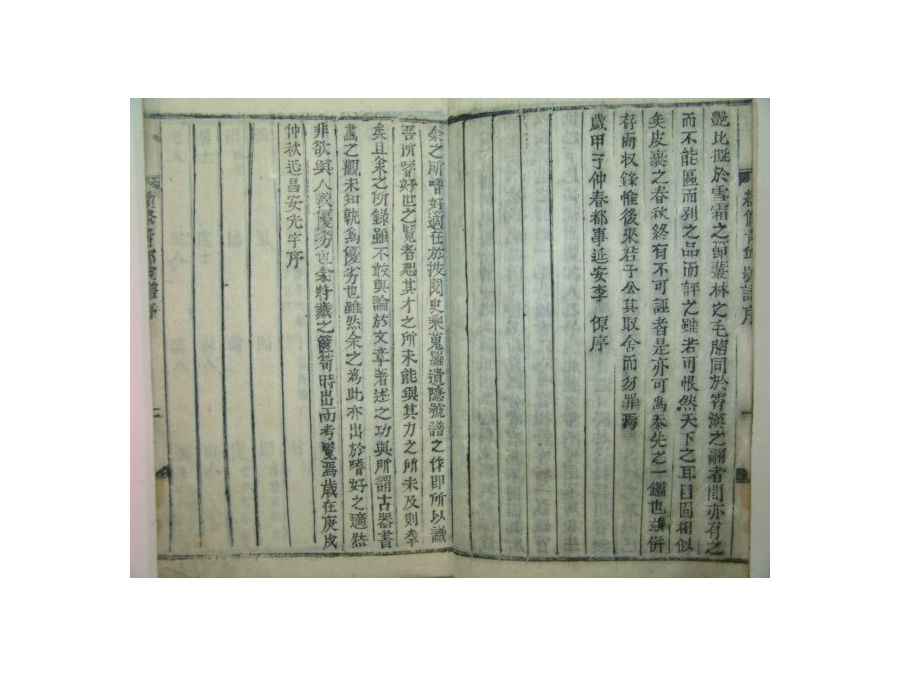 艶比擬於雪霜之節叢林之毛腊同於霄漢之翮者間亦有之
而不能區而別之品而評之雖若可恨然天下之耳目固相似
矣皮裹之春秋終有不可誣者是亦可為秦先之一鑑也玆併
存而收錄惟後來君子公其取舍而勿罪焉
歲甲子仲春都事延安李 序
余之所嗜好適在於披閱史乘蒐羅遺隱號譜之作即所以識
吾所嗜好也世之覽者恕其才之所未能與其力之所未及則幸
矣且余之所錄雖不敢與論於文章著述之功與所謂古器書
畫之觀未知孰為優劣也雖然余之為此亦出於嗜好之適然
非欲與人較優劣也余將藏之篋笥時出而考覽焉歲在庚戌
仲秋 昌安光字序